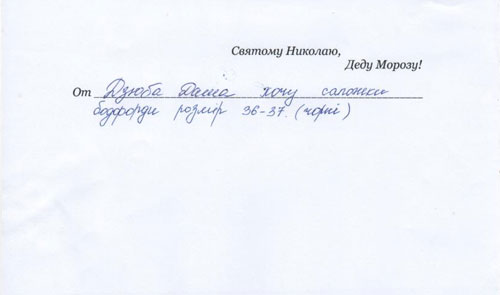 Святому Николаю,
Деду Морозу!
От Дзюба Даша хочу сапожки
ботфорди розмір 36-37. (чорні)